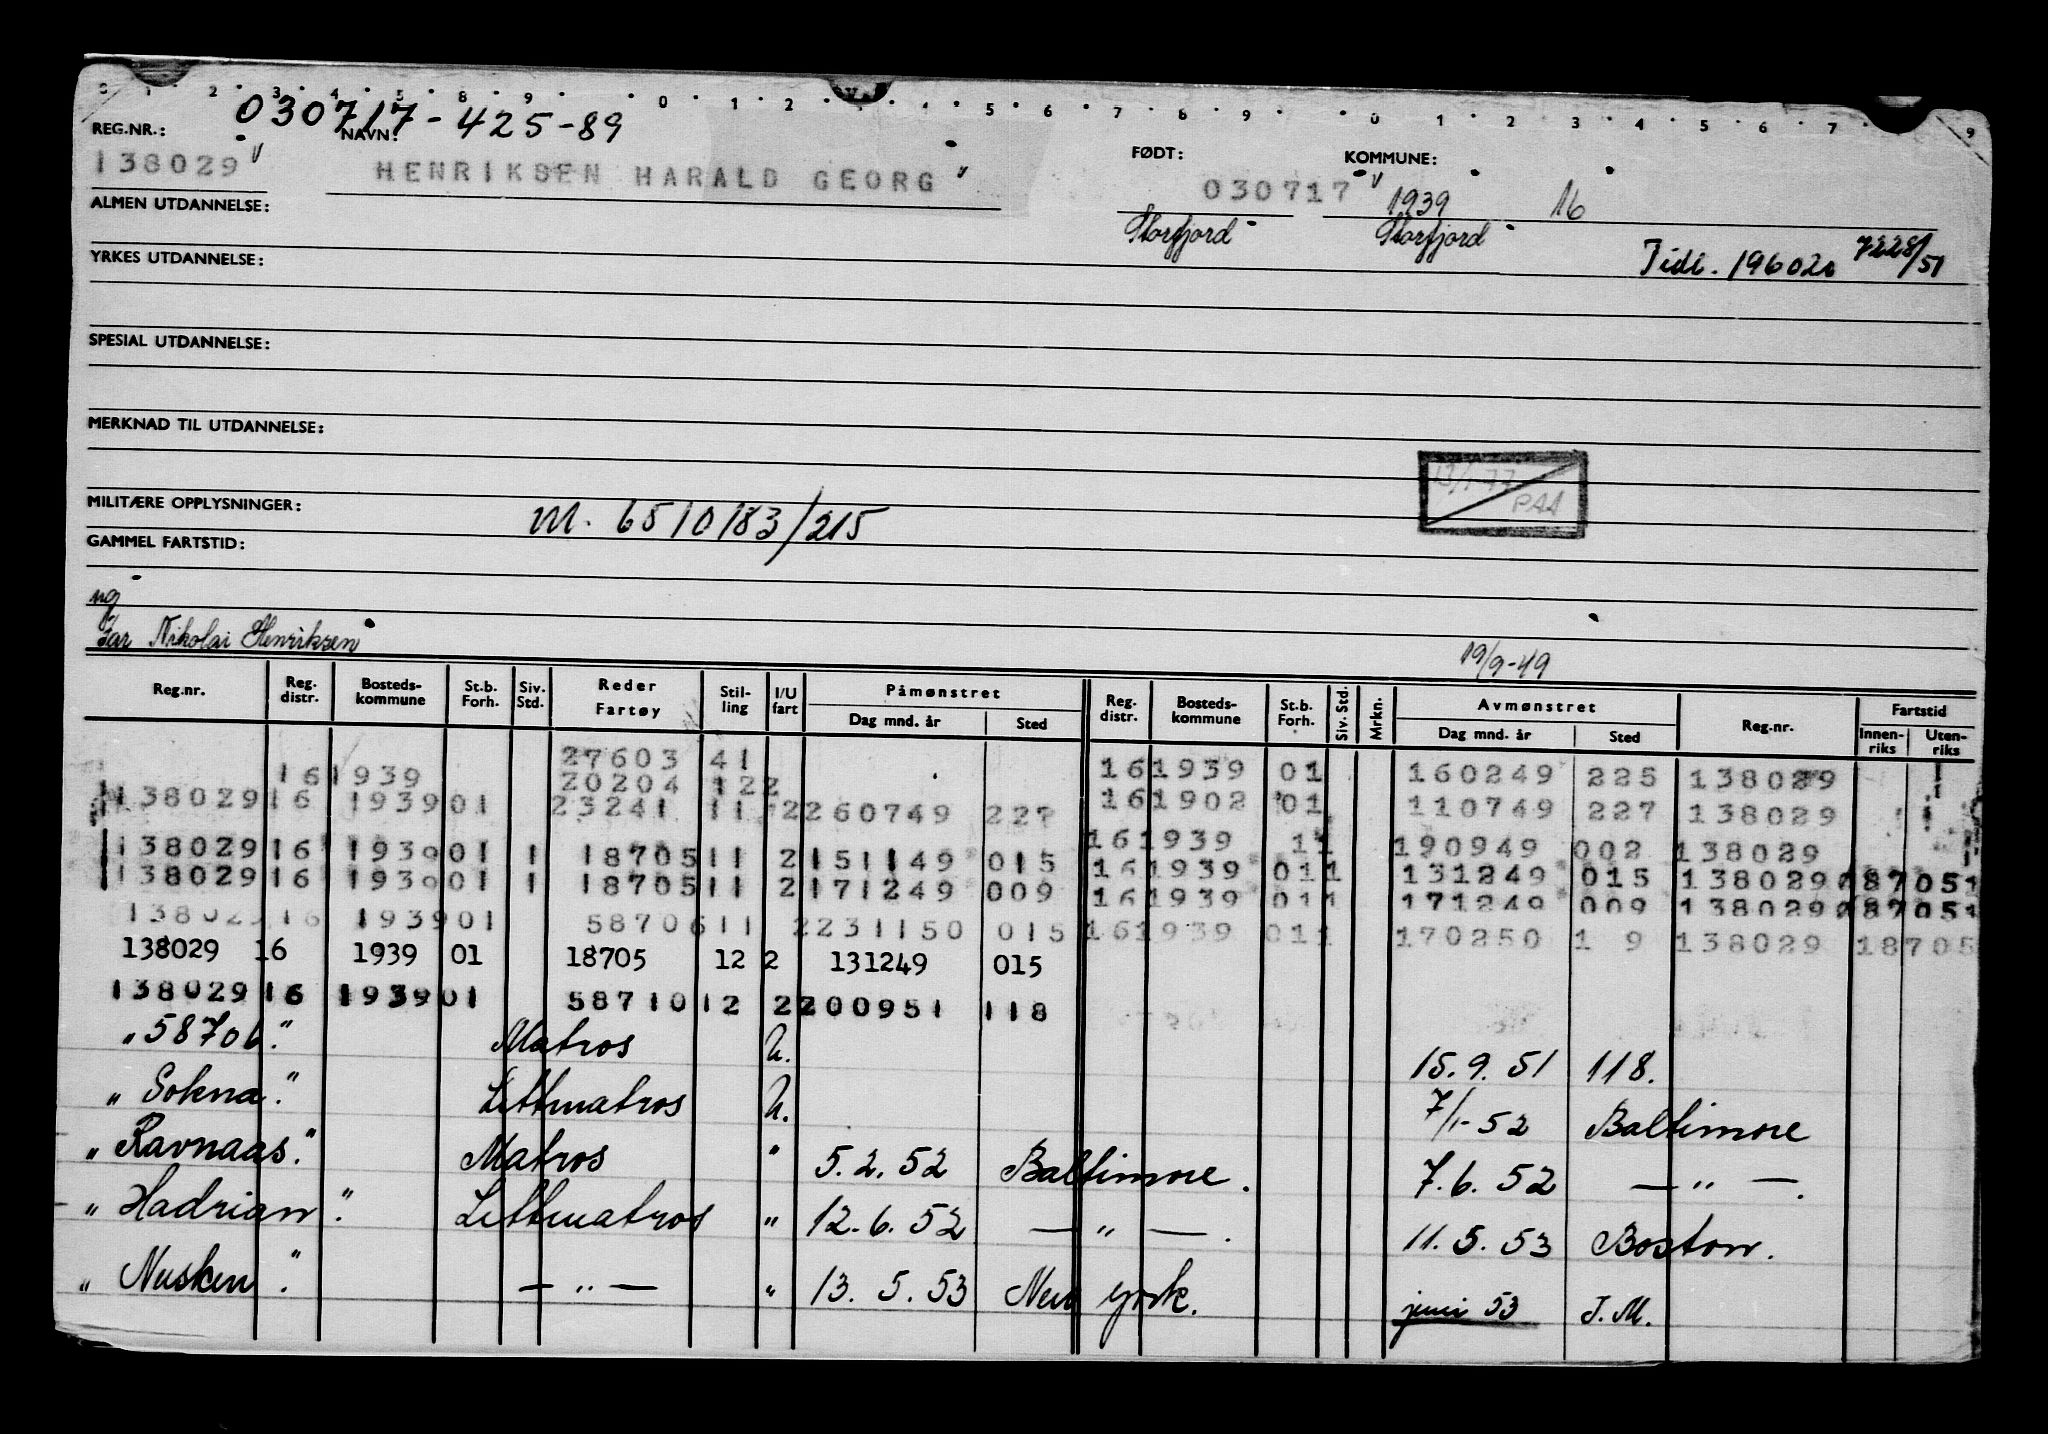 030717-425-89
REG.NR.: NAVN: FØDT: KOMMUNE:
138029 HENRIKSEN HARALD GEORG 030717 1939 16
ALMEN UTDANNELSE: Storfjord Storfjord
Tidl. 196020 7228/51
YRKES UTDANNELSE:
SPESIAL UTDANNELSE:
MERKNAD TIL UTDANNELSE:
13/1-77
PAA
MILITÆRE OPPLYSNINGER: M. 6510183/215
GAMMEL FARTSTID:
ug
Far Nikolai Henriksen
19/9-49
Reg.nr. Reg. distr. Bosteds- kommune St.b. Forh. Siv. Std. Reder Fartøy Stil- ling I/U fart Påmønstret Dag mnd. år Sted Reg. distr. Bosteds- kommune St.b. Forh. Siv. Std. Mrkn. Avmønstret Dag mnd. år Sted Reg.nr. Fartstid Innen- riks Uten- riks
27603 41 16 1939 01 160249 225 138029
16 1939 20204 122 16 1902 01 110749 227 138029
138029 16 1939 01 23241 11 2 260749 227 16 1939 11 190949 002 138029
138029 16 1939 01 1 18705 11 2 151149 015 16 1939 01 1 131249 015 138029 187051
138029 16 1939 01 1 18705 11 2 171249 009 16 1939 01 1 171249 009 138029 187051
138029 16 1939 01 58706 11 2 231150 015 16 1939 01 1 170250 1 9 138029 18705
138029 16 1939 01 18705 12 2 131249 015
138029 16 1939 01 58710 12 2 200951 118
"58706." Matros U. 15.9.51 118.
"Sokna." Lettmatros U. 7/1-52 Baltimore
"Ravnaas." Matros " 5.2.52 Baltimore. 7.6.52 — " —.
"Hadrian". Lettmatros " 12.6.52 — " —. 11.5.53 Boston.
"Nusken". — " — " 13.5.53 New York. juni 53 I.M.